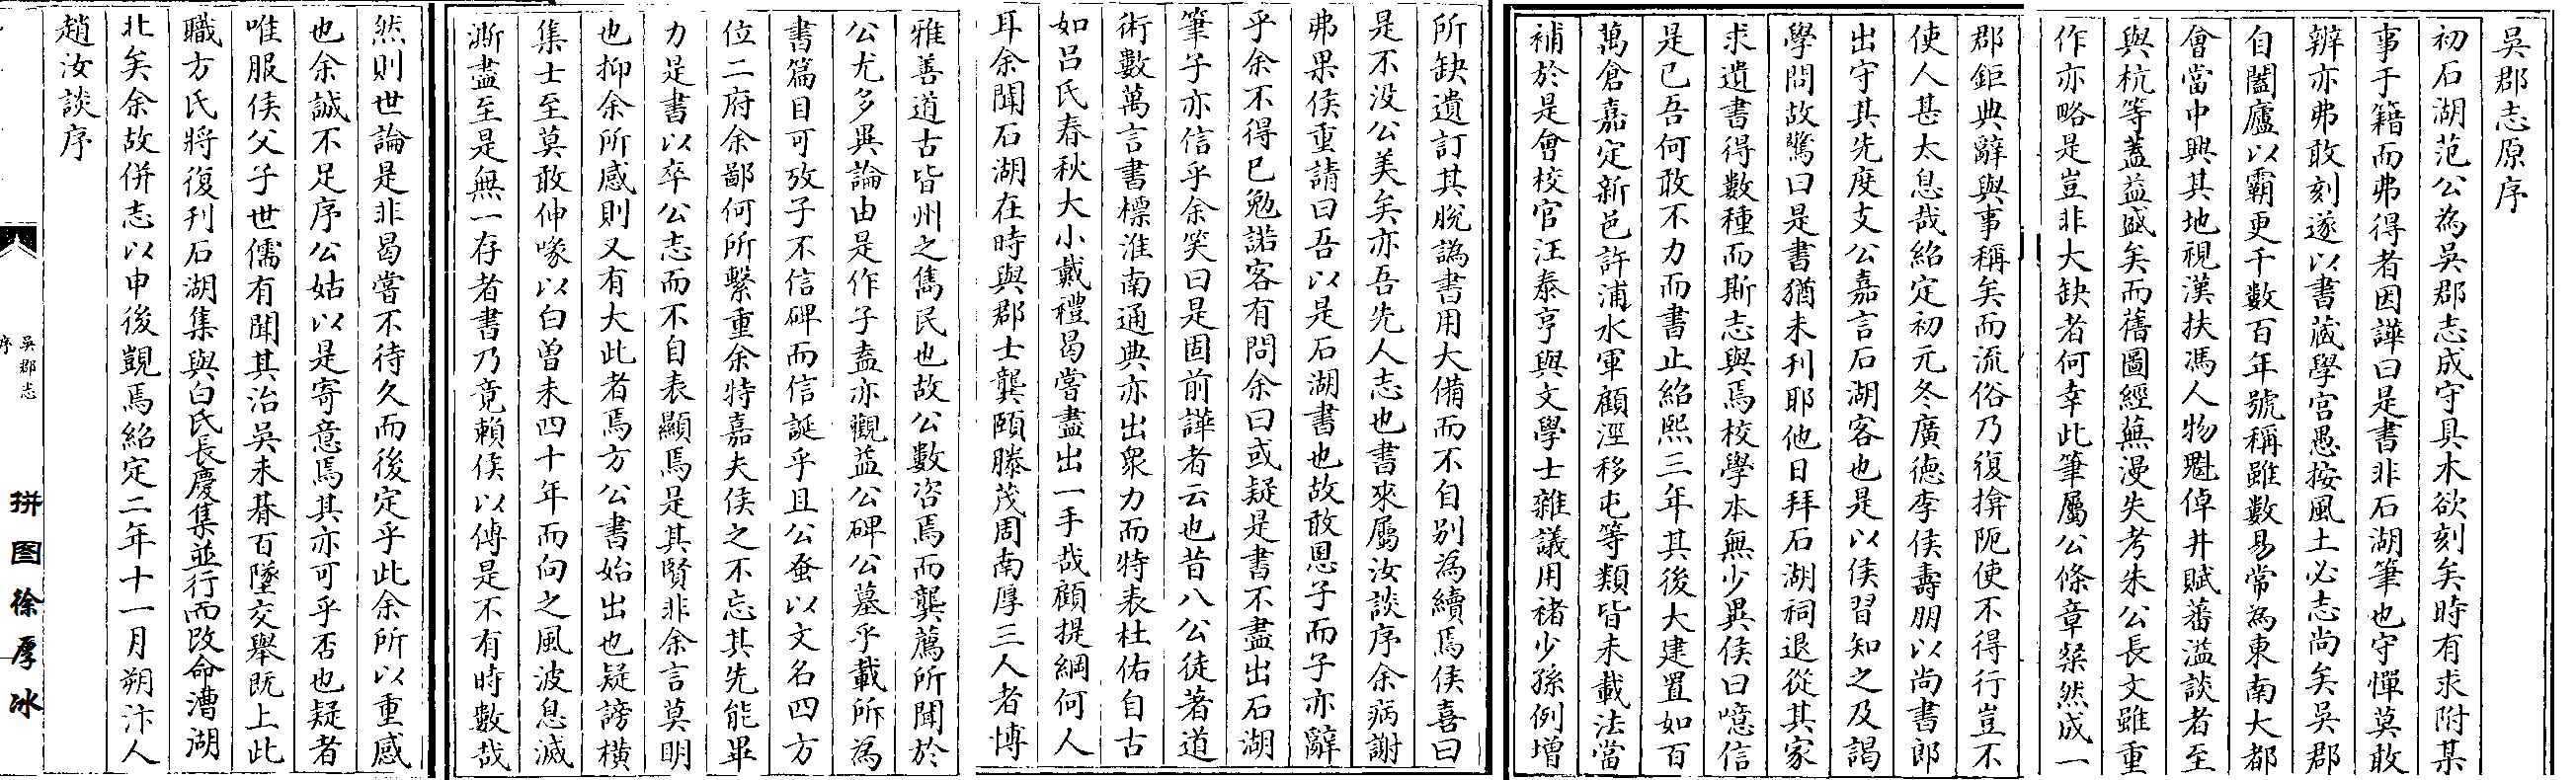 吳郡志原序
初石湖范公為吳郡志成守具木欲刻矣時有求附某
事于籍而弗得者因譁曰是書非石湖筆也守憚莫敢
辨亦弗敢刻遂以書藏學宫愚按風土必志尚矣吳郡
自闔廬以霸更千數百年號稱雖數易常為東南大都
會當中興其地視漢扶馮人物魁倬井賦蕃溢談者至
與杭等蓋益盛矣而舊圖經蕪漫失考朱公長文雖重
作亦略是豈非大缺者何幸此筆屬公條章粲然成一
郡鉅典辭與事稱矣而流俗乃復揜阨使不得行豈不
使人甚太息哉紹定初元冬廣德李侯壽朋以尚書郎
出守其先度支公嘉言石湖客也是以侯習知之及謁
學問故驚曰是書猶未刊耶他日拜石湖祠退從其家
求遺書得數種而斯志與焉校學本無少異侯曰噫信
是已吾何敢不力而書止紹熙三年其後大建置如百
萬倉嘉定新邑許浦水軍顧涇移屯等類皆未載法當
補於是會校官汪泰亨與文學士雜議用褚少孫例增
所缺遺訂其脱譌書用大備而不自别為續焉侯喜曰
是不没公美矣亦吾先人志也書來屬汝談序余病謝
弗果侯重請曰吾以是石湖書也故敢恩子而子亦辭
乎余不得已勉諾客有問余曰或疑是書不盡出石湖
筆子亦信乎余笑曰是固前譁者云也昔八公徒著道
術數萬言書標淮南通典亦出衆力而特表杜佑自古
如吕氏春秋大小戴禮曷嘗盡出一手哉顧提綱何人
耳余聞石湖在時與郡士龔頤滕茂周南厚三人者博
雅善道古皆州之雋民也故公數咨焉而龔薦所聞於
公尤多異論由是作子盍亦觀益公碑公墓乎載所為
書篇目可攷子不信碑而信誕乎且公蚤以文名四方
位二府余鄙何所繫重余特嘉夫侯之不忘其先能畢
力是書以卒公志而不自表顯焉是其賢非余言莫明
也抑余所感則又有大此者焉方公書始出也疑謗横
集士至莫敢伸喙以白曾未四十年而向之風波息滅
澌盡至是無一存者書乃竟賴侯以傳是不有時數哉
然則世論是非曷嘗不待久而後定乎此余所以重感
也余誠不足序公姑以是寄意焉其亦可乎否也疑者
唯服侯父子世儒有聞其治吳未朞百墜交舉既上此
職方氏將復刊石湖集與白氏長慶集並行而改命漕湖
北矣余故併志以申後覬焉紹定二年十一月朔汴人
趙汝談序
吳郡志
序
拼图徐厚冰